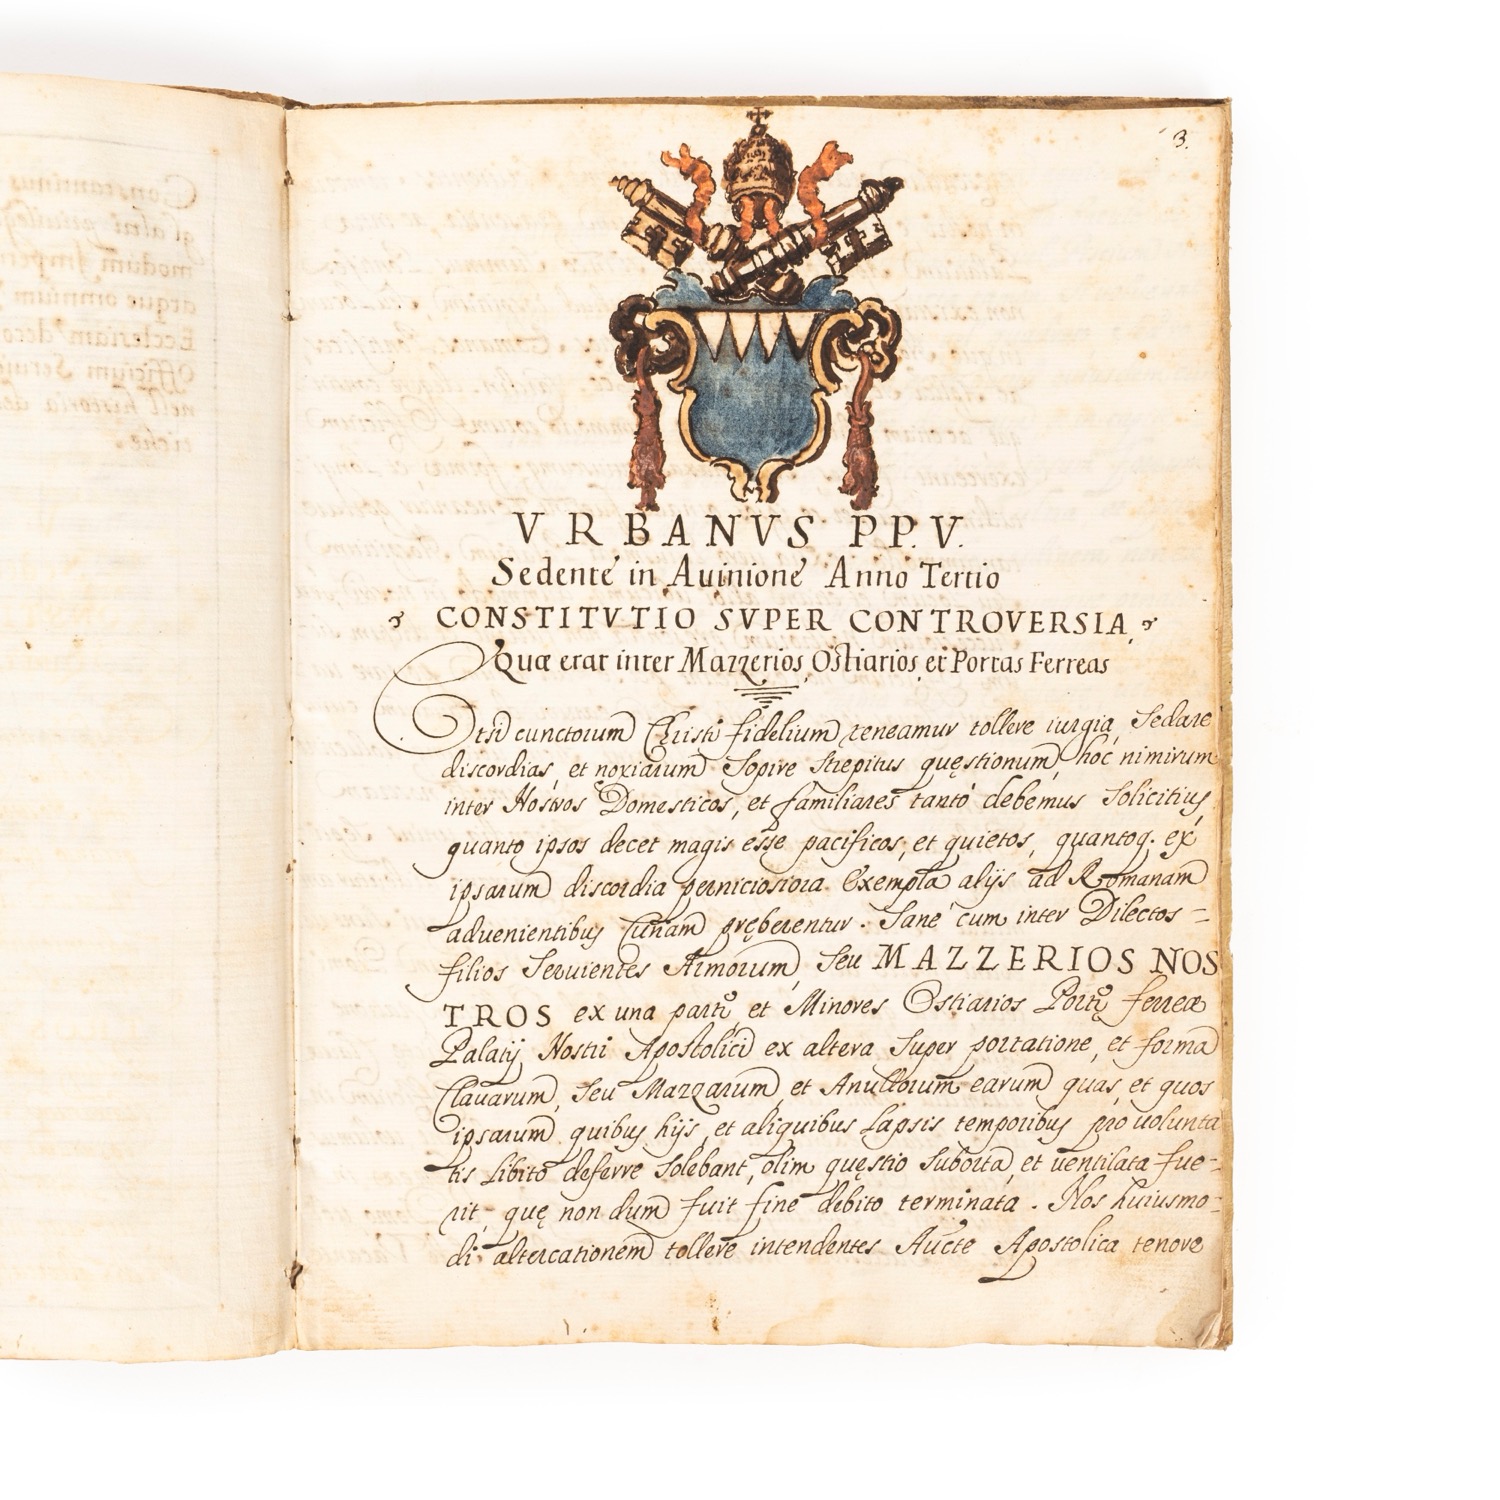 3.
VRBANVS PP. V.
Sedente in Auinione Anno Tertio
CONSTITVTIO SVPER CONTROVERSIA,
Quæ erat inter Mazzerios, Ostiarios, et Portas Ferreas
Etsi cunctorum Christi fidelium teneamur tollere iurgia, Sedare
discordias, et noxiarum Sopire strepitus quęstionum, hoc nimirum
inter Nostros Domesticos, et familiares tanto debemus Solicitius,
quanto ipsos decet magis esse pacificos, et quietos, quantoq. ex
ipsarum discordia perniciosiora Exempla alijs ad Romanam
aduenientibus Curiam pręberentur. Sane cum inter Dilectos =
filios Seruientes Armorum, Seu MAZZERIOS NOS
TROS ex una parte, et Minores Ostiarios Portę ferreæ
Palatij Nostri Apostolici ex altera Super portatione, et forma
Clauarum, Seu Mazzarum, et Anullorum earum quas, et quos
ipsarum quibus hijs, et aliquibus Lapsis temporibus pro uolunta
tis Libito deferre Solebant, olim quęstio Suborta, et uentilata fue=
rit, quę non dum fuit fine debito terminata. Nos huiusmo=
di altercationem tollere intendentes Aucte Apostolica tenore
Constantinus
modum Imper
atque omnium
Ecclesiam deco
Officium Serui
nell' historia de